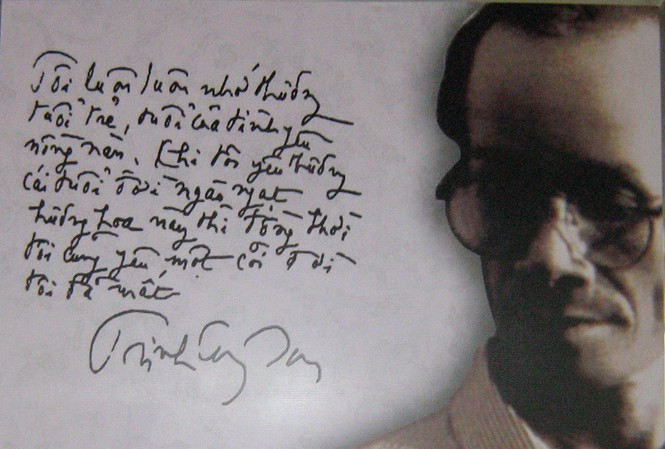 Tôi luôn luôn nhớ thương
tuổi trẻ, tuổi của tình yêu
nồng nàn. Khi tôi yêu thương
cái tuổi ở đời ngào ngạt
hương hoa này thì đồng thời
tôi cũng yêu một cõi đời
tôi đã mất
Trịnh Công Sơn